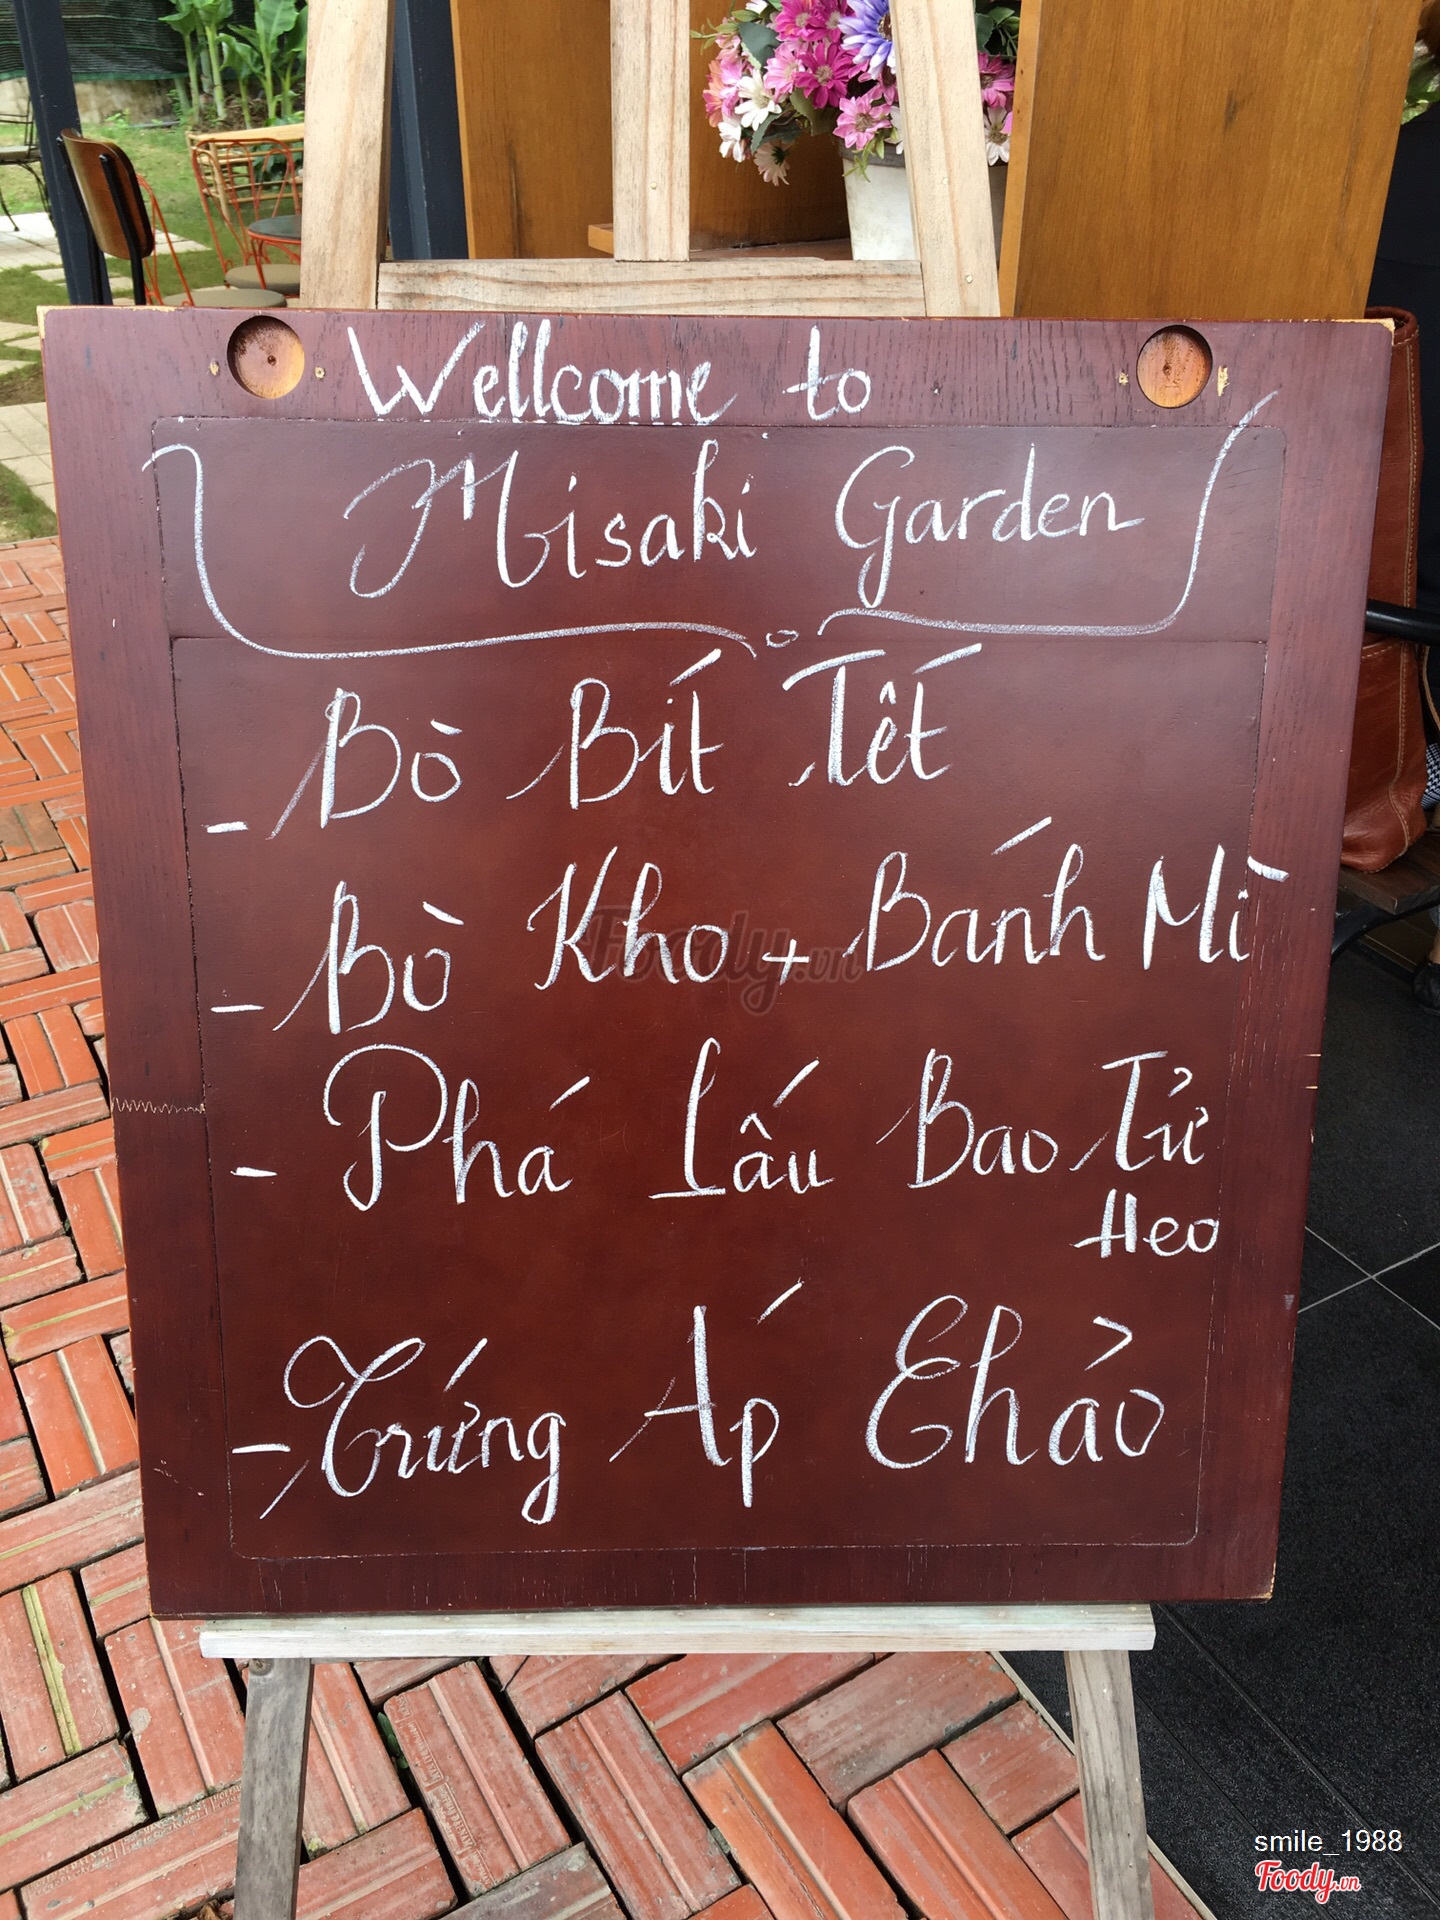 Wellcome to
Misaki Garden
- Bò Bít Tết
- Bò Kho + Bánh Mì
- Phá Lấu Bao Tử
Heo
- Trứng Áp Chảo
Foody.vn
smile_1988
Foody.vn